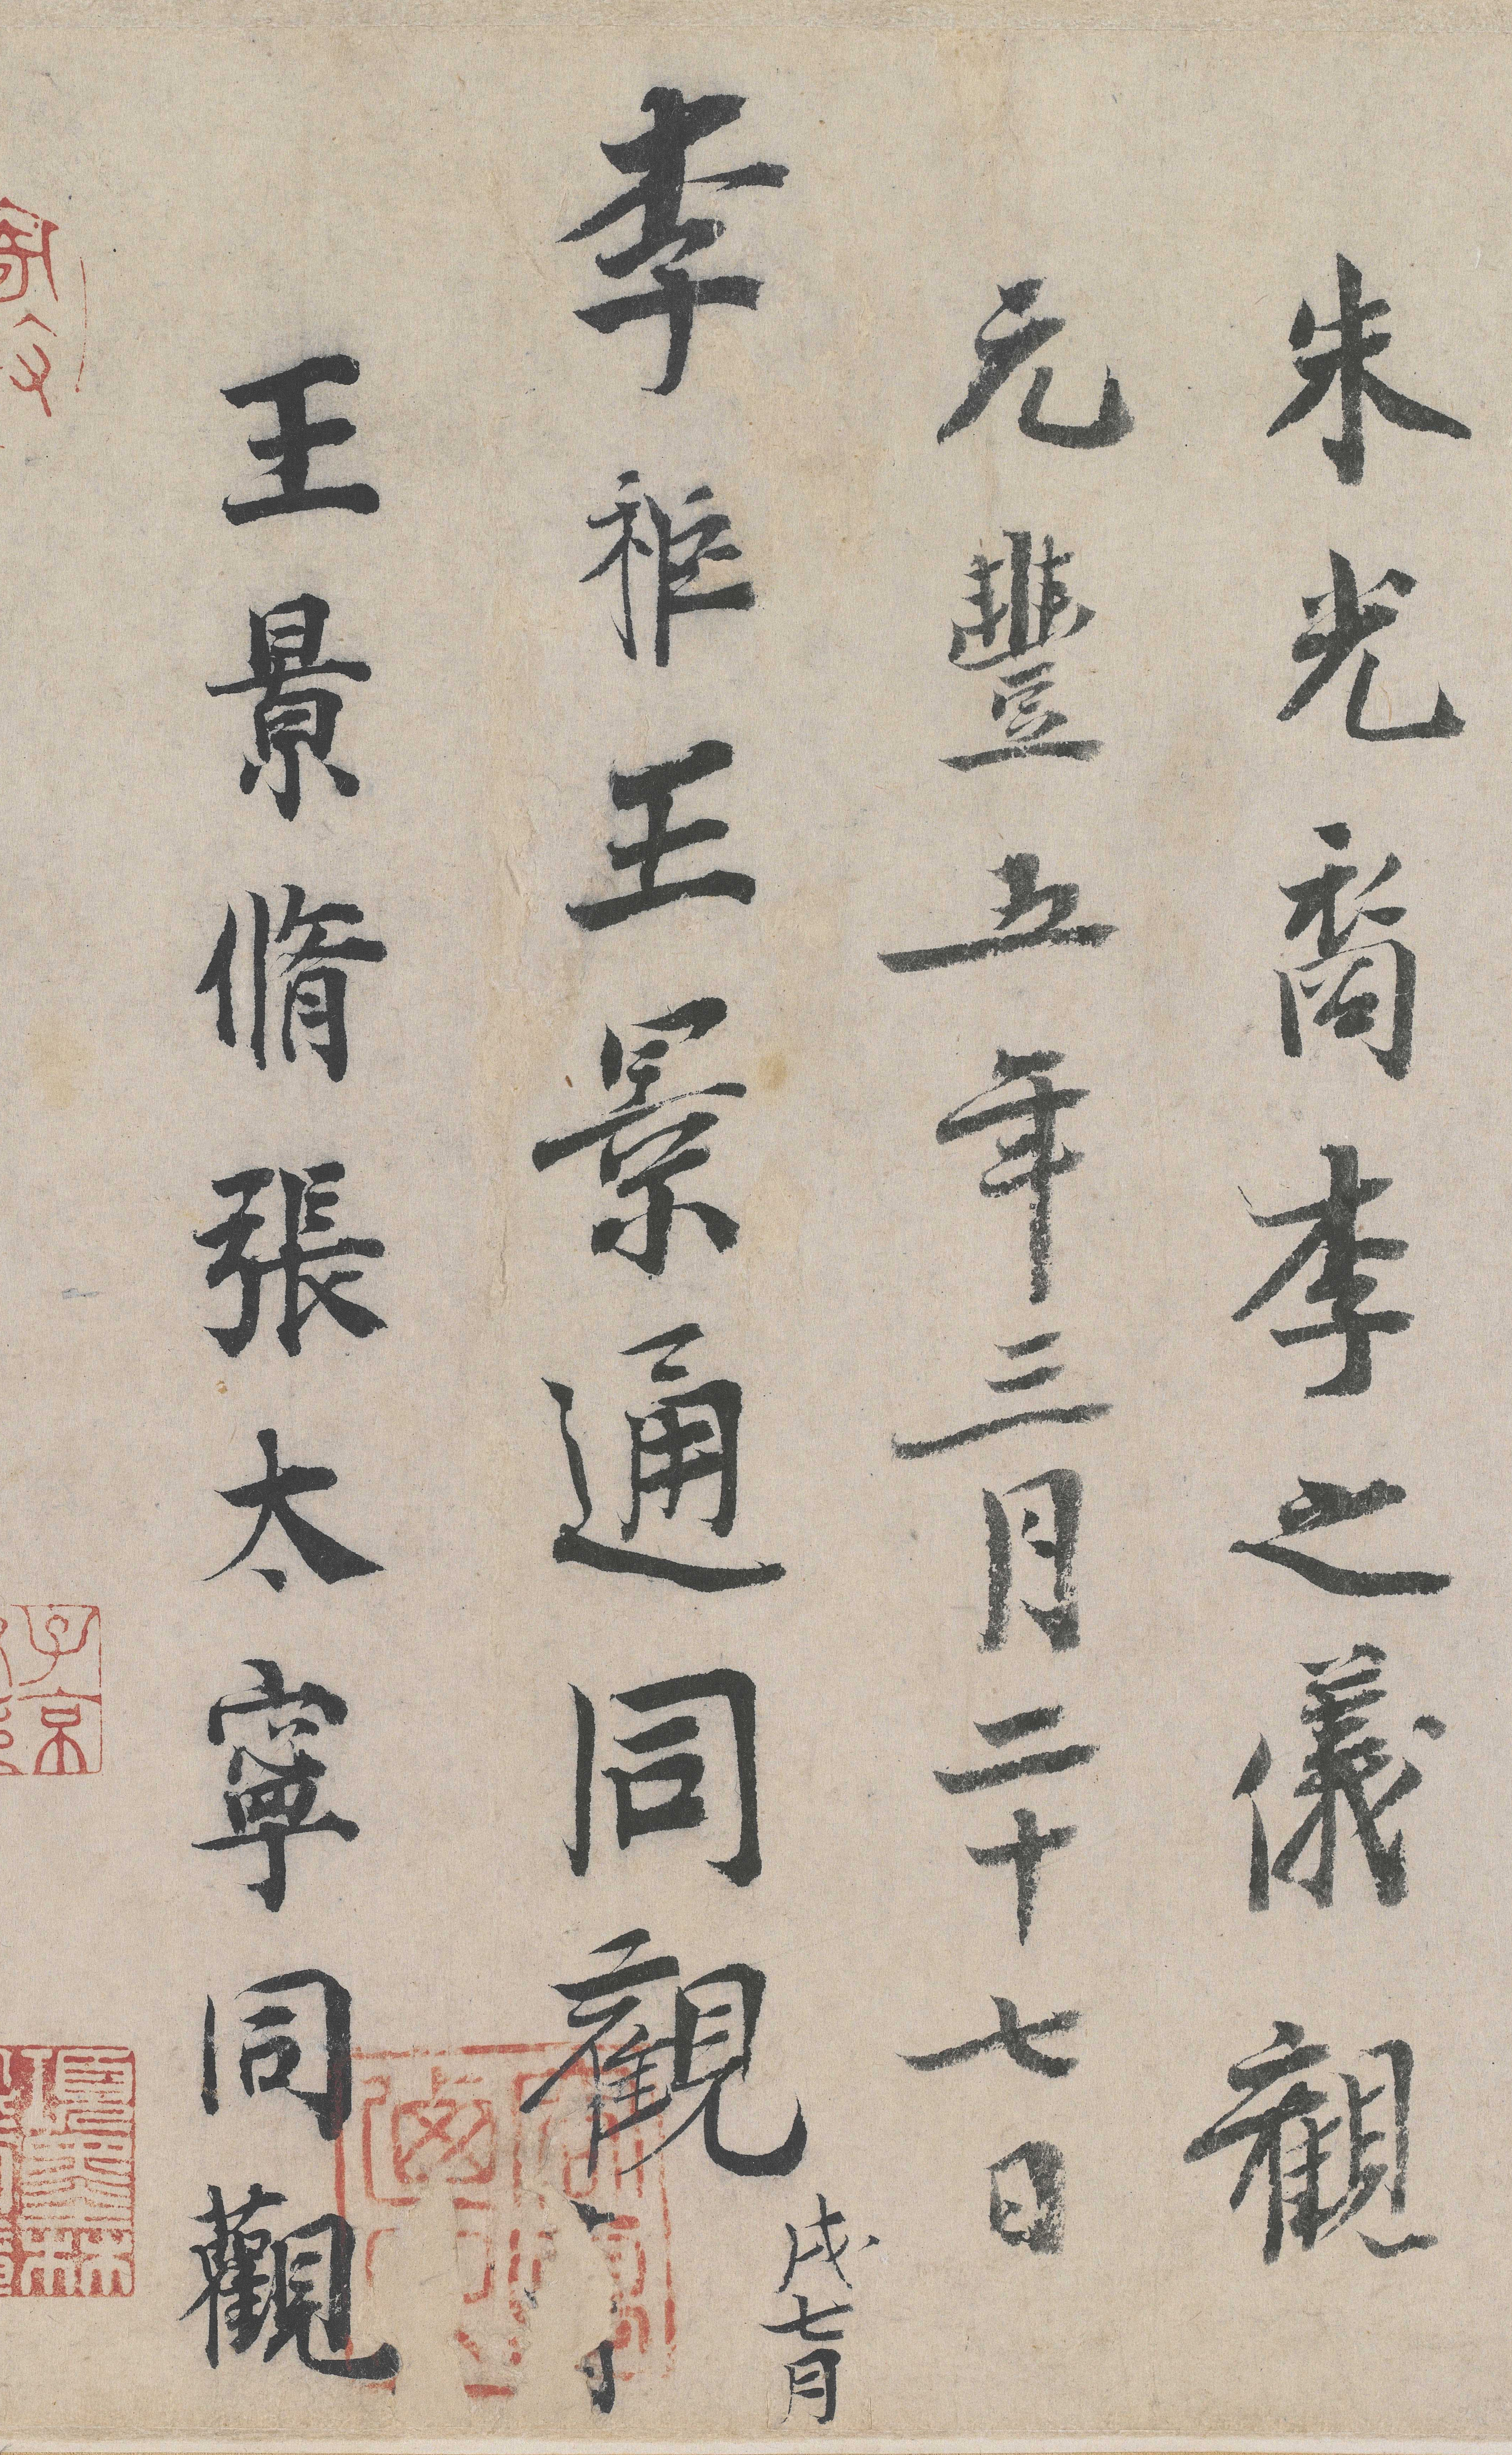 朱光裔李之儀觀
元豐五年三月二十七日
李䘗王景通同觀
戌七月
日
王景脩張太寧同觀
子京